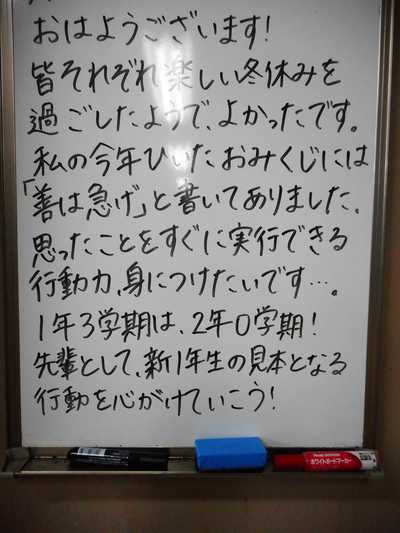 おはようございます!
皆それぞれ楽しい冬休みを
過ごしたようで、よかったです。
私の今年ひいたおみくじには
「善は急げ」と書いてありました。
思ったことをすぐに実行できる
行動力、身につけたいです…。
1年3学期は、2年0学期!
先輩として、新1年生の見本となる
行動を心がけていこう!
ホワイトボードマーカー